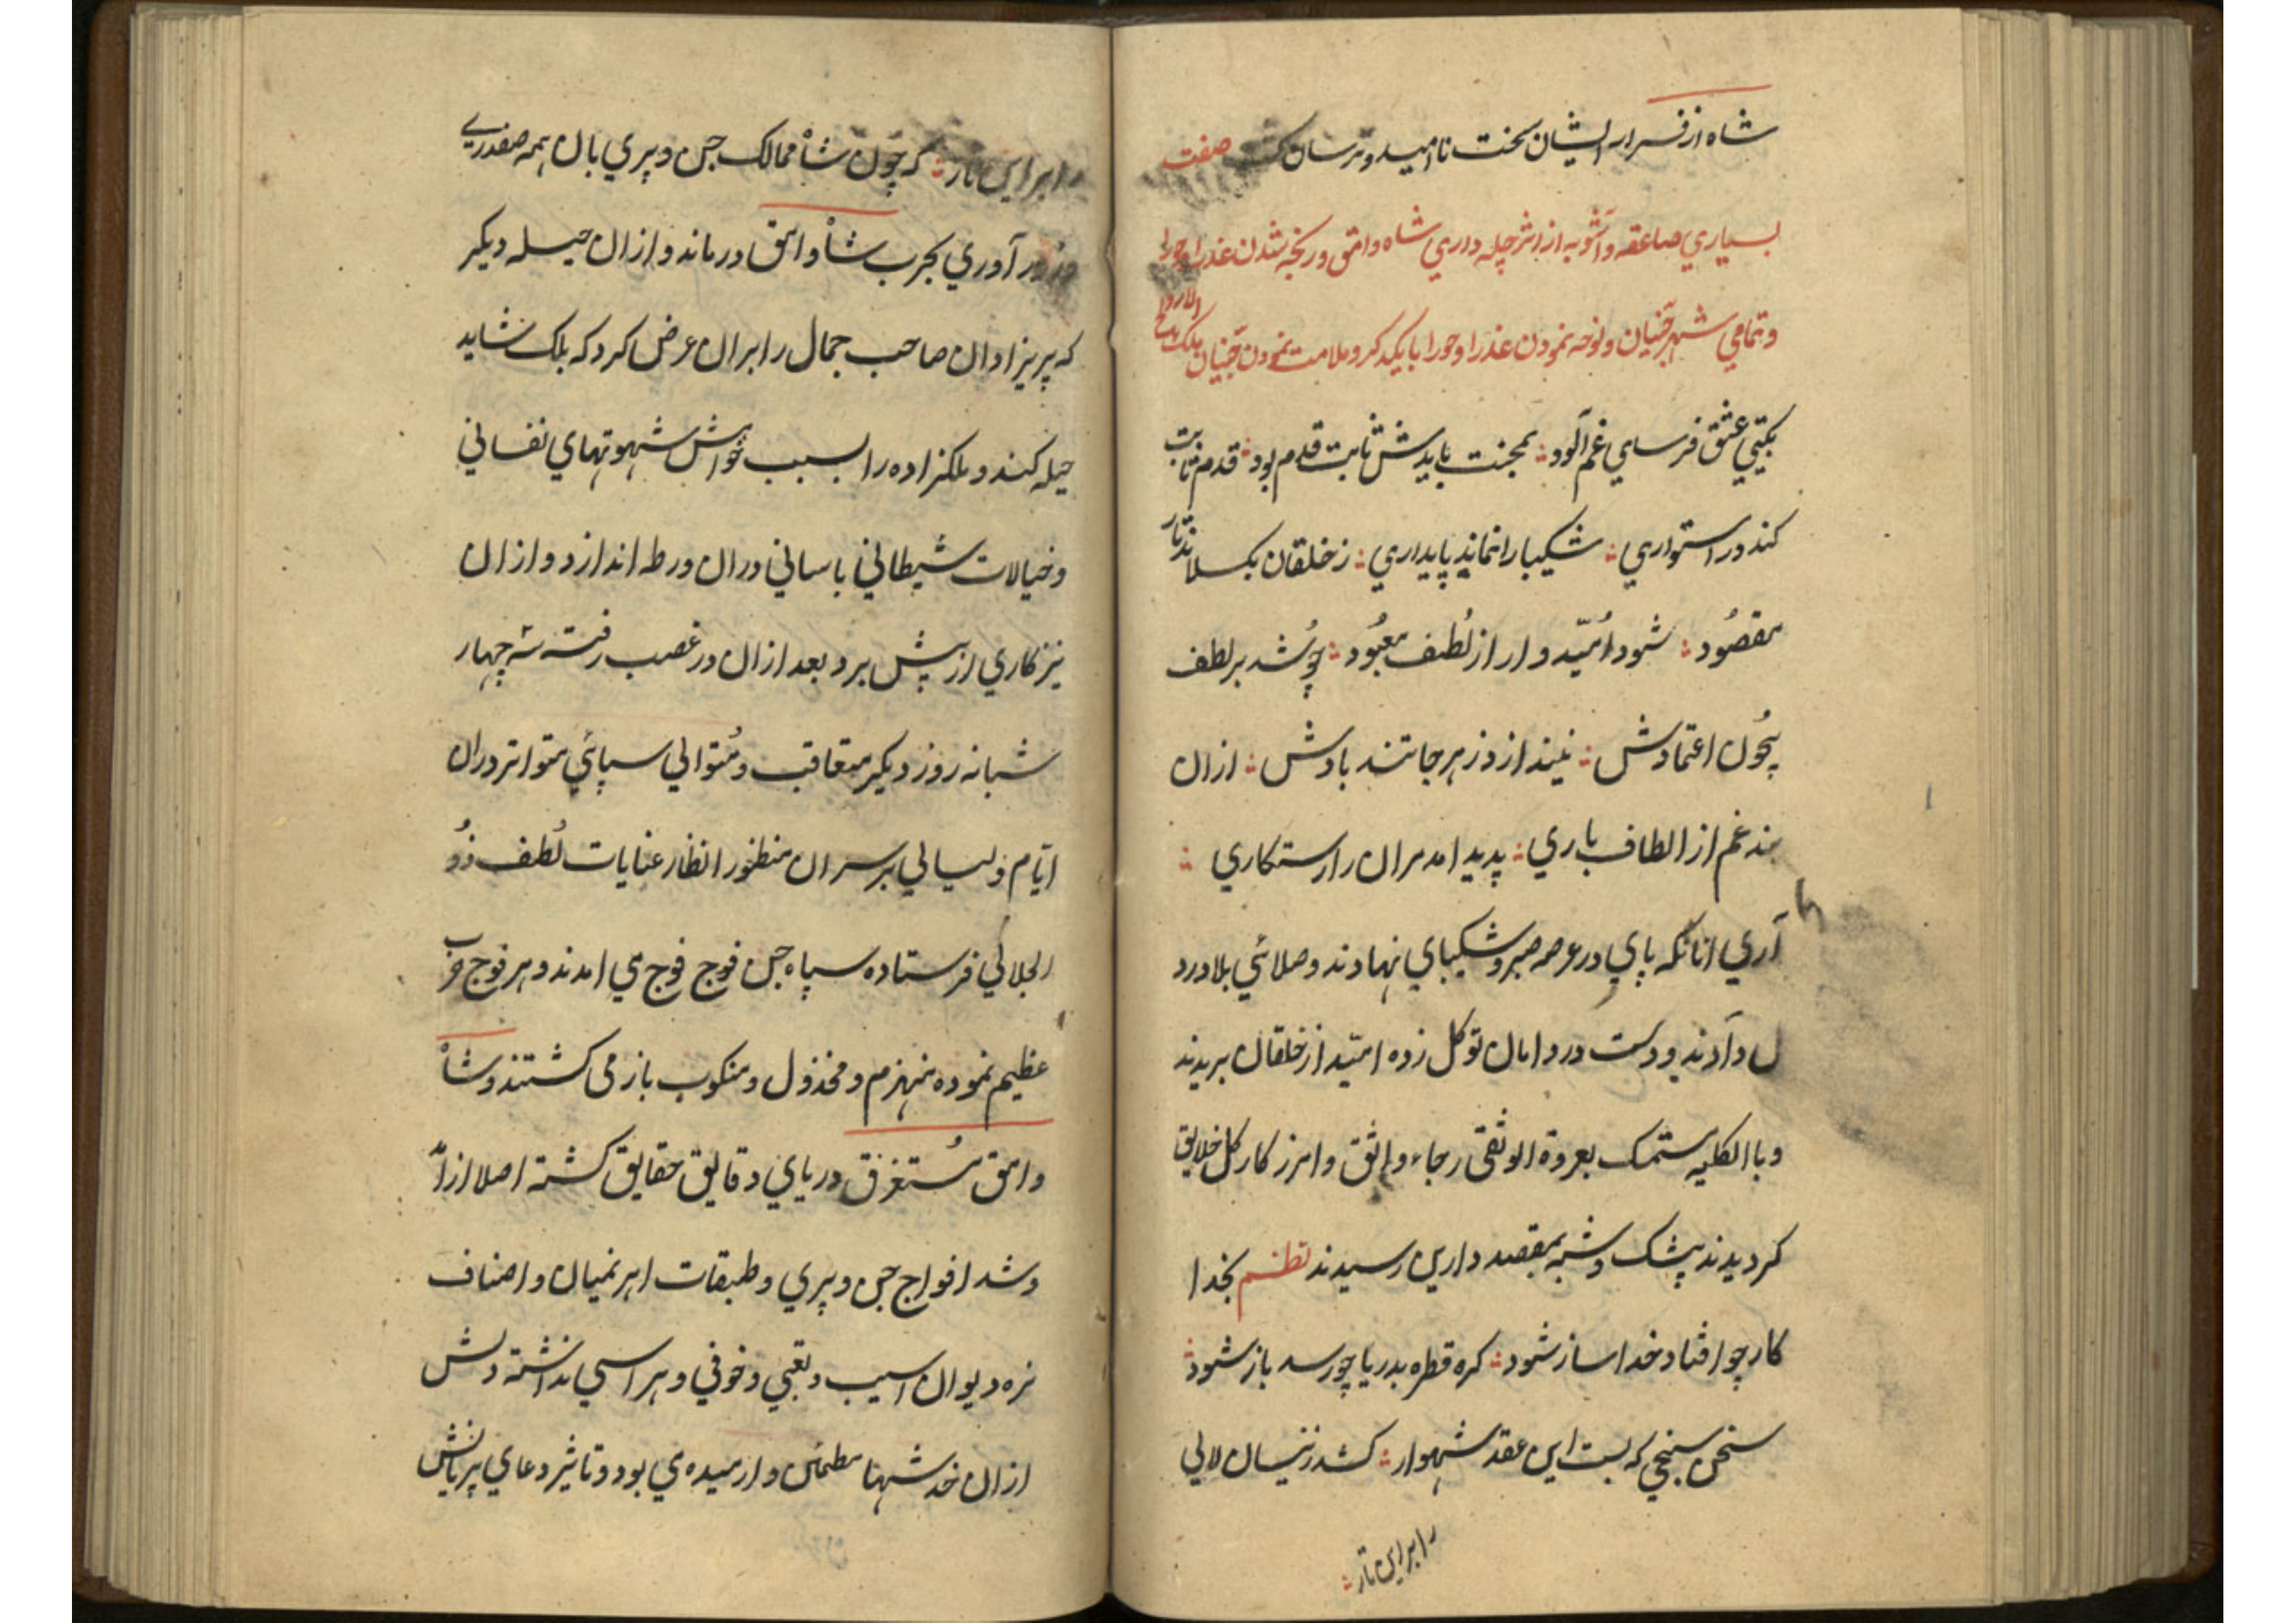 شاه از فرار ایشان سخت ناامید و ترسان گشت صفت
بسیاری صاعقه و آشوبه از اثر چله داری شاه وامق و رنجه شدن عذرا و حورا
و تمامی شهر جنیان و نوحه نمودن عذرا و حورا با یکدیگر و ملامت نمودن جنیان ملک
بگیتی عشق فرسای غم آلود؞ بمحنت بایدش ثابت قدم بود؞ قدم ثابت
کند در استواری؞ شکیبا را نماند پایداری؞ ز خلقان بکسلاند تار
مقصُود؞ شود اُمّیدوار از لُطف معبُود؞ چو شُد بر لطف
بیچُون اعتمادش؞ نیندازد ز هر جا تند بادش؞ ازان
بند غم از الطاف باری؞ پدید امد مران را رستکاری ؞
آری انانکه پای در عرصه صبر و شکیبای نهادند و صلائی بلا در د
ل دادند و دست در دامان توکل زده امّید از خلقان بریدند
و با الکلیه ستمسک بعروة الوثقی رجاء واثق و امرز کار کل خلایق
کردیدند بیشک و شبه بمقصد دارین رسیدند نظم بخدا
کار چو افتاد خدا ساز شود؞ کره قطره بدریا چو رسد باز شود؞
سخن سنجی که بست این عقد شهوار؞ کشد ز نیسان لالی
را بر این تار؞
را بر این تار؞ که چون شاه ممالک جن و پری بان همه صفدری
و زور آوری بحرب شاه وامق درماند و ازان حیله دیکر
که پریزادان صاحب جمال را بران عرض کرد که بلک شاید
حیله کند و ملکزاده را بسبب خواش شهوتهای نفسانی
و خیالات شیطانی باسانی دران ورطه اندازد و ازان
نیز کاری از پیش نبرد بعد ازان در غصب رفته سه چهار
شبانه روز دیکر متعاقب و مُتوالی سپائی متواتر دران
ایّام و لیالی بر سر ان منظور انظار عنایات لُطف ذُو
الجلالی فرستاده سپاه جن فوج فوج می امدند و هر فوج حرب
عظیم نموده منهزم و مخذول و منکوب باز می کشتند و شاه
وامق مُستغرق دریای دقایق حقایق کشته اصلا از ام
د و شد افواج جن و پری و طبقات اهرنمیان و اصناف
نره دیوان اسیب و تعبی و خوفی و هراسی نداشته دلش
ازان خدشهنا مطمئن و ارمیده می بود و تاثیر دعای پر یانش